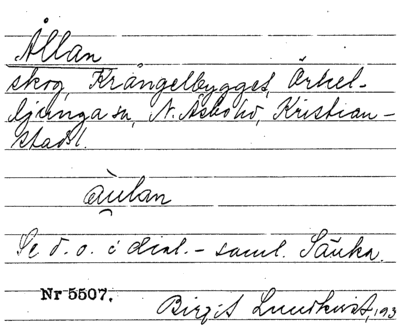 Ållan
skog, Krångelbygget, Örkel-
ljunga sn, N. Åsbo hd, Kristian-
stads l.
åulan
Se d. o. i dial.- saml. Sånka.
Nr 5507.
Birgit Lundkvist, 193